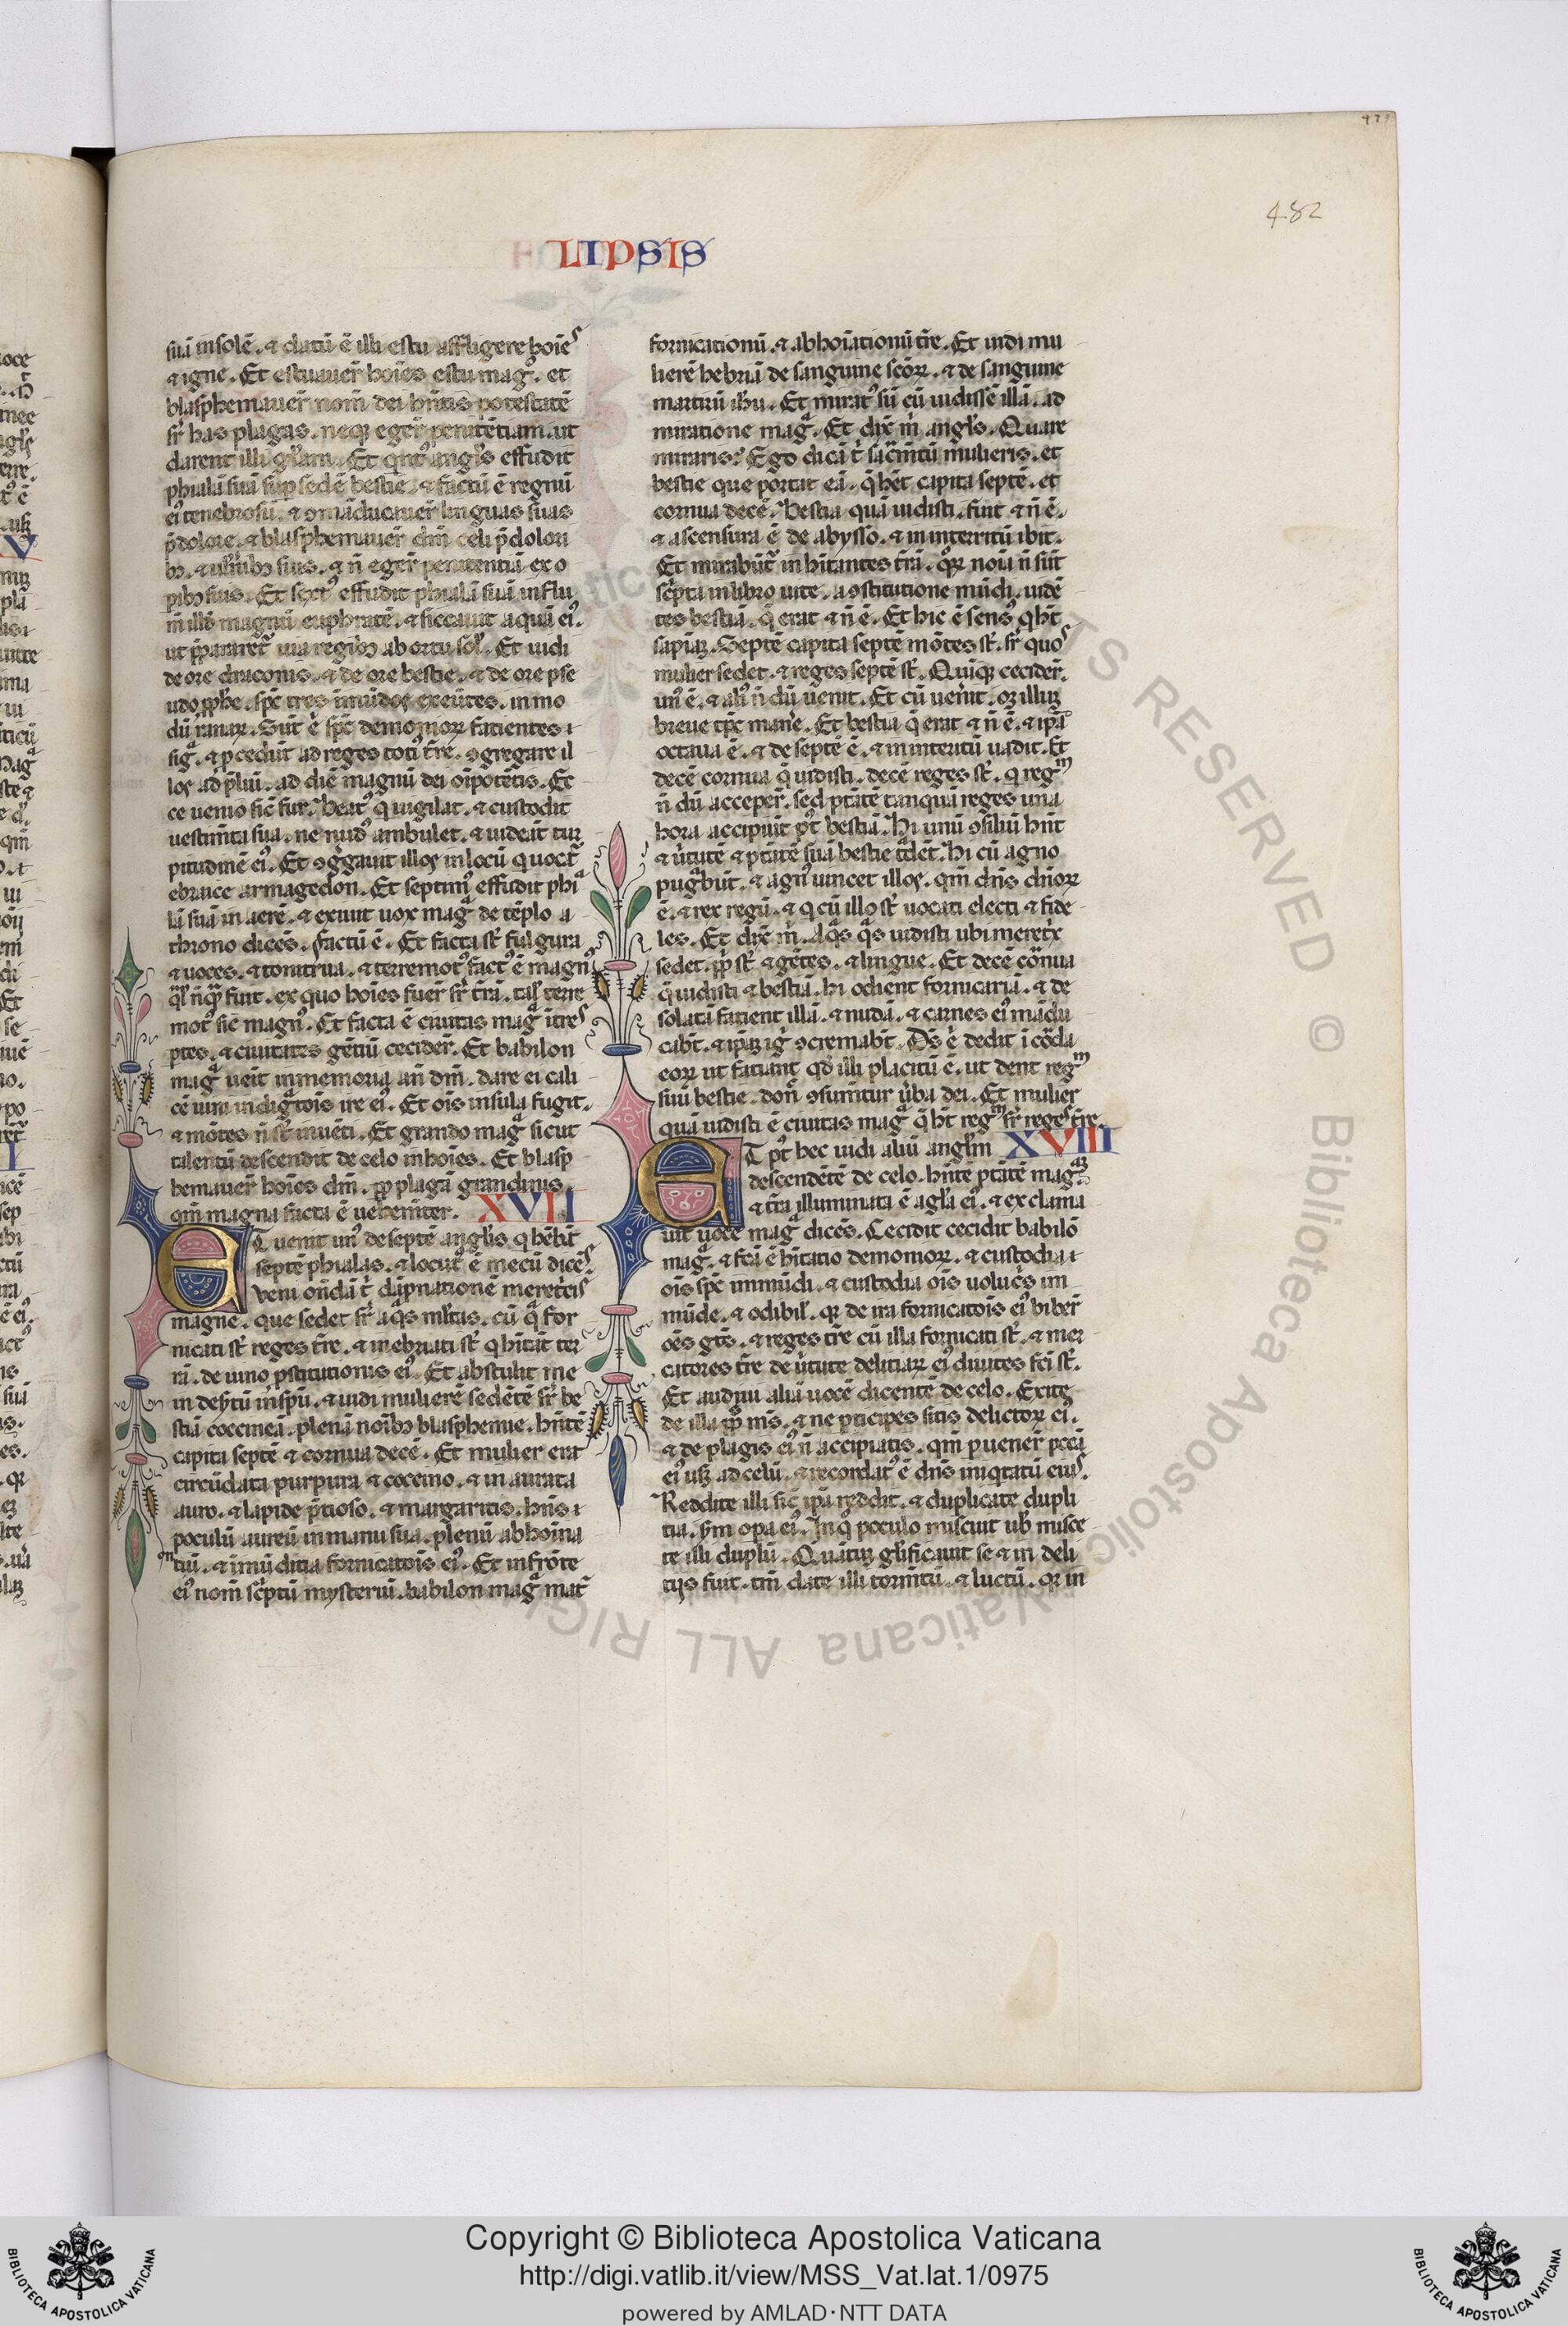 482
LIPSIS
suā in solē. ⁊ datū ē illi estu affligere hoīes
⁊ igne. Et estuauer̄ hoīes estu magͦ. et
blasphemauer̄ nom̄ dei hn̄tis potestatē
sr̄ has plagas. neqꝫ eger̄ penitētiam. ut
darent illi gl̄am. Et qͥntꝰ angl̄s effudit
phialā suā sup sedē bestie. ⁊ factū ē regnū
eiꝰ tenebrosū. ⁊ ꝯmāducauer̄ linguas suas
p̄ dolore. ⁊ blasphemauer̄ dm̄ celi p̄ dolori
bꝫ. ⁊ uln̄ibꝫ suis. ⁊ n̄ eger̄ penitentiā ex o
pibꝫ suis. Et sextꝰ effudit phialā suā in flu
m̄ illd̄ magnū euphratē. ⁊ siccauit aquā eiꝰ.
ut p̄pararet᷑ uia regibꝫ ab ortu sol̄. Et uidi
de ore draconis. ⁊ de ore bestie. ⁊ de ore pse
udo ꝓphe. sp̄c tres īmūdos exeūtes. in mo
dū ranaꝝ. Sūt ē sp̄c demonioꝝ facientes
sigͣ. ⁊ ꝓcedūt ad reges totiꝰ t̄re. ꝯgregare il
los ad p̄liū. ad diē magnū dei oīpotētis. Ec
ce uenio sic̄ fur. Beatꝰ qͥ uigilat. ⁊ custodit
uestim̄ta sua. ne nudꝰ ambulet. ⁊ uideāt tur
pitudinē eiꝰ. Et ꝯgͥgauit illos in locū qͥ uocat᷑
ebraice armagedon. Et septimꝰ effudit phiͣ
lā suā in aerē. ⁊ exiuit uox magͣ de tēplo a
throno dicēs. Factū ē. Et facta st̄ fulgura
⁊ uoces. ⁊ tonitrua. ⁊ terremotꝰ factꝰ ē magnꝰ
qͣl̄ nūqͣ fuit. ex quo hoīes fuer̄ sr̄ t̄rā. tal̄ terre
motꝰ sic̄ magnꝰ. Et facta ē ciuitas magͣ ī tres
ptes. ⁊ ciuitates gētiū cecider̄. Et babilon
magͣ ueīt in memoriā an̄ dm̄. dare ei cali
cē uini indigͣtois ire eiꝰ. Et oīs insula fugit.
⁊ mōtes n̄ st̄ inuēti. Et grando magͣ sicut
talentū descendit de celo in hoīes. Et blasp
hemauer̄ hoīes dm̄. ꝓp plagā grandinis.
qm̄ magna facta ē uehem̄ter. XVII
ET uenit unꝰ de septē angl̄is qͥ hēbāt
septē phialas. ⁊ locutꝰ ē mecū dicēs.
Veni on̄dā t̄ dāpnationē meretͥcis
magne. que sedet sr̄ aqͣs ml̄tas. cū qͣ for
nicati st̄ reges t̄re. ⁊ inebriati st̄ qͥ hītāt ter
rā. de uino ꝓstitutionis eiꝰ. Et abstulit me
in des̄tū in sp̄u. ⁊ uidi mulierē sedētē sr̄ be
stiā coccineā. plenā noībꝫ blasphemie. hn̄tē
capita septē ⁊ cornua decē. Et mulier erat
circūdata purpura ⁊ coccino. ⁊ in aurata
auro. ⁊ lapide p̄tioso. ⁊ margaritis. hn̄s
poculū aureū in manu sua. plenū abhoīna
onū. ⁊ īmūditia fornicatois eiꝰ. Et in frōte
eiꝰ nom̄ sc̄ptū mysteriū. babilon magͣ mat᷑
fornicationū. ⁊ abhoīationū t̄re. Et uidi mu
lierē hebriā de sanguine sc̄oꝝ. ⁊ de sanguine
martirū ihu. Et miratꝰ sū cū uidissē illā. ad
miratione magͣ. Et dix̄ m̄ angl̄s. Quare
miraris? Ego dicā t̄ sac̄m̄tū mulieris. et
bestie que portat eā. q̄ hēt capita septē. et
cornua decē. Bestia quā uidisti. fuit ⁊ n̄ ē.
⁊ ascensura ē de abysso. ⁊ in interitū ibit.
Et mirabūt᷑ inhitantes t̄rā. qͦꝝ noīa n̄ sūt
sc̄pta in libro uite. a ꝯstitutione mūdi. uidē
tes bestiā. q̄ erat ⁊ n̄ ē. Et hic ē sensꝰ qͥ hēt
sapiāꝫ. Septē capita septē mōtes st̄. sr̄ quos
mulier sedet. ⁊ reges septē st̄. Quīqꝫ cecider̄.
unꝰ ē. ⁊ aliꝰ n̄ dū uenit. Et cū uen̄it. oꝫ illuꝫ
breue tp̄c man̄e. Et bestia q̄ erat ⁊ n̄ ē. ⁊ ipͣa
octaua ē. ⁊ de septē ē. ⁊ in interitū uadit. Et
decē cornua q̄ uidisti. decē reges st̄. qͥ regᵐ
n̄ dū acceper̄. sed ptātē tanquā reges una
hora accipiūt pꝰt bestiā. Hi unū ꝯsiliū hn̄t
⁊ ūtutē ⁊ ptātē suā bestie tͣdēt. Hi cū agno
pugͣbūt. ⁊ agnꝰ uincet illos. qm̄ dn̄s dn̄oꝝ
ē. ⁊ rex regū. ⁊ qͥ cū illo st̄ uocati electi ⁊ fide
les. Et dix̄ m̄. Aqͣs qͣs uidisti ubi meretͥx
sedet. ppl̄i st̄ ⁊ gētes. ⁊ lingue. Et decē cornua
q̄ uidisti ⁊ bestiā. hi odient fornicariā. ⁊ de
solatā facient illā. ⁊ nudā. ⁊ carnes eiꝰ mādu
cabt̄. ⁊ ipāꝫ igͥ ꝯcremabt̄. Ds̄ ē dedit ī cōda
eoꝝ ut faciant qd̄ illi placitū ē. ut dent regᵐ
suū bestie. don̄ ꝯsum̄tur ūba dei. Et mulier
quā uidisti ē ciuitas magͣ q̄ ht̄ regᵐ sr̄ reges t̄re.
ET pꝰt hec uidi aliū angl̄m XVIII
descendētē de celo. hn̄tē ptātē magͣꝫ.
⁊ t̄ra illuminata ē a gl̄a eiꝰ. ⁊ exclama
uit uoce magͣ dicēs. Cecidit cecidit babilō
magͣ. ⁊ fc̄ā ē hītatio demonioꝝ. ⁊ custodia
oīs sp̄c immūdi. ⁊ custodia oīs uoluc̄s im
mūde. ⁊ odibil̄. qꝛ de ira fornicatois eiꝰ biber̄
oēs gn̄ts. ⁊ reges t̄re cū illa fornicati st̄. ⁊ mer
catores t̄re de ūtute delitiaꝝ eiꝰ diuites fc̄i st̄.
Et audiui aliā uocē dicentē de celo. Exite
de illa ppl̄s ms̄. ⁊ ne pticipes sitis delictoꝝ eiꝰ.
⁊ de plagis eiꝰ n̄ accipiatis. qm̄ puener̄ pcc̄ā
eiꝰ usqꝫ ad celū. ⁊ recordatꝰ ē dn̄s iniqͥtatū eius.
Reddite illi sic̄ ipā reddit. ⁊ duplicate dupli
cia. sm̄ opa eiꝰ. In qͦ poculo miscuit uobͥ misce
te illi duplū. Quātuꝫ gl̄ificauit se ⁊ in deli
tijs fuit. tm̄ date illi torm̄tū. ⁊ luctū. qꝛ in
Copyright © Biblioteca Apostolica Vaticana
http://digi.vatlib.it/view/MSS_Vat.lat.1/0975
powered by AMLAD·NTT DATA
BIBLIOTECA APOSTOLICA VATICANA
BIBLIOTECA APOSTOLICA VATICANA